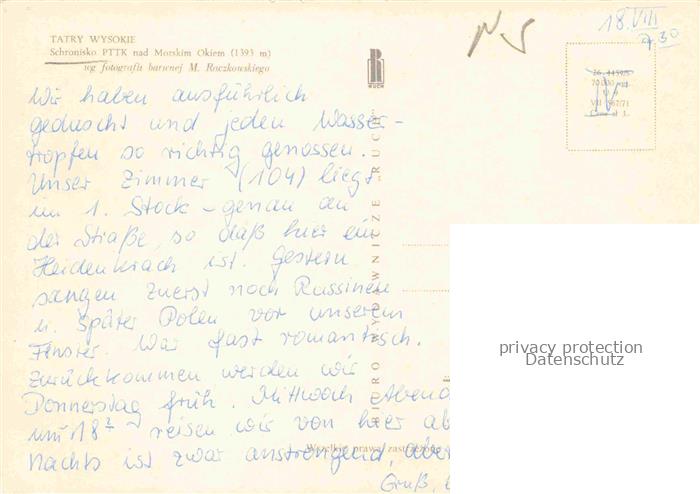 TATRY WYSOKIE
Schronisko PTTK nad Morskim Okiem (1393 m)
wg fotografii barwnej M. Raczkowskiego
RUCH
18.VIII
9.30
Wir haben ausführlich
geduscht und jeden Wasser-
tropfen so richtig genossen.
Unser Zimmer (104) liegt
im 1. Stock - genau an
der Straße, so daß hier ein
Heidenkrach ist. Gestern
sangen zuerst noch Russinen
u. später Polen vor unserem
Fenster. War fast romantisch.
Zurückkommen werden wir
Donnerstag früh. Mittwoch Abend
um 18 reisen wir von hier ab
Nachts ist zwar anstrengend, aber
Gruß,
BIURO WYDAWNICZE „RUCH"
Wszelkie prawa zastrzeżone
privacy protection
Datenschutz